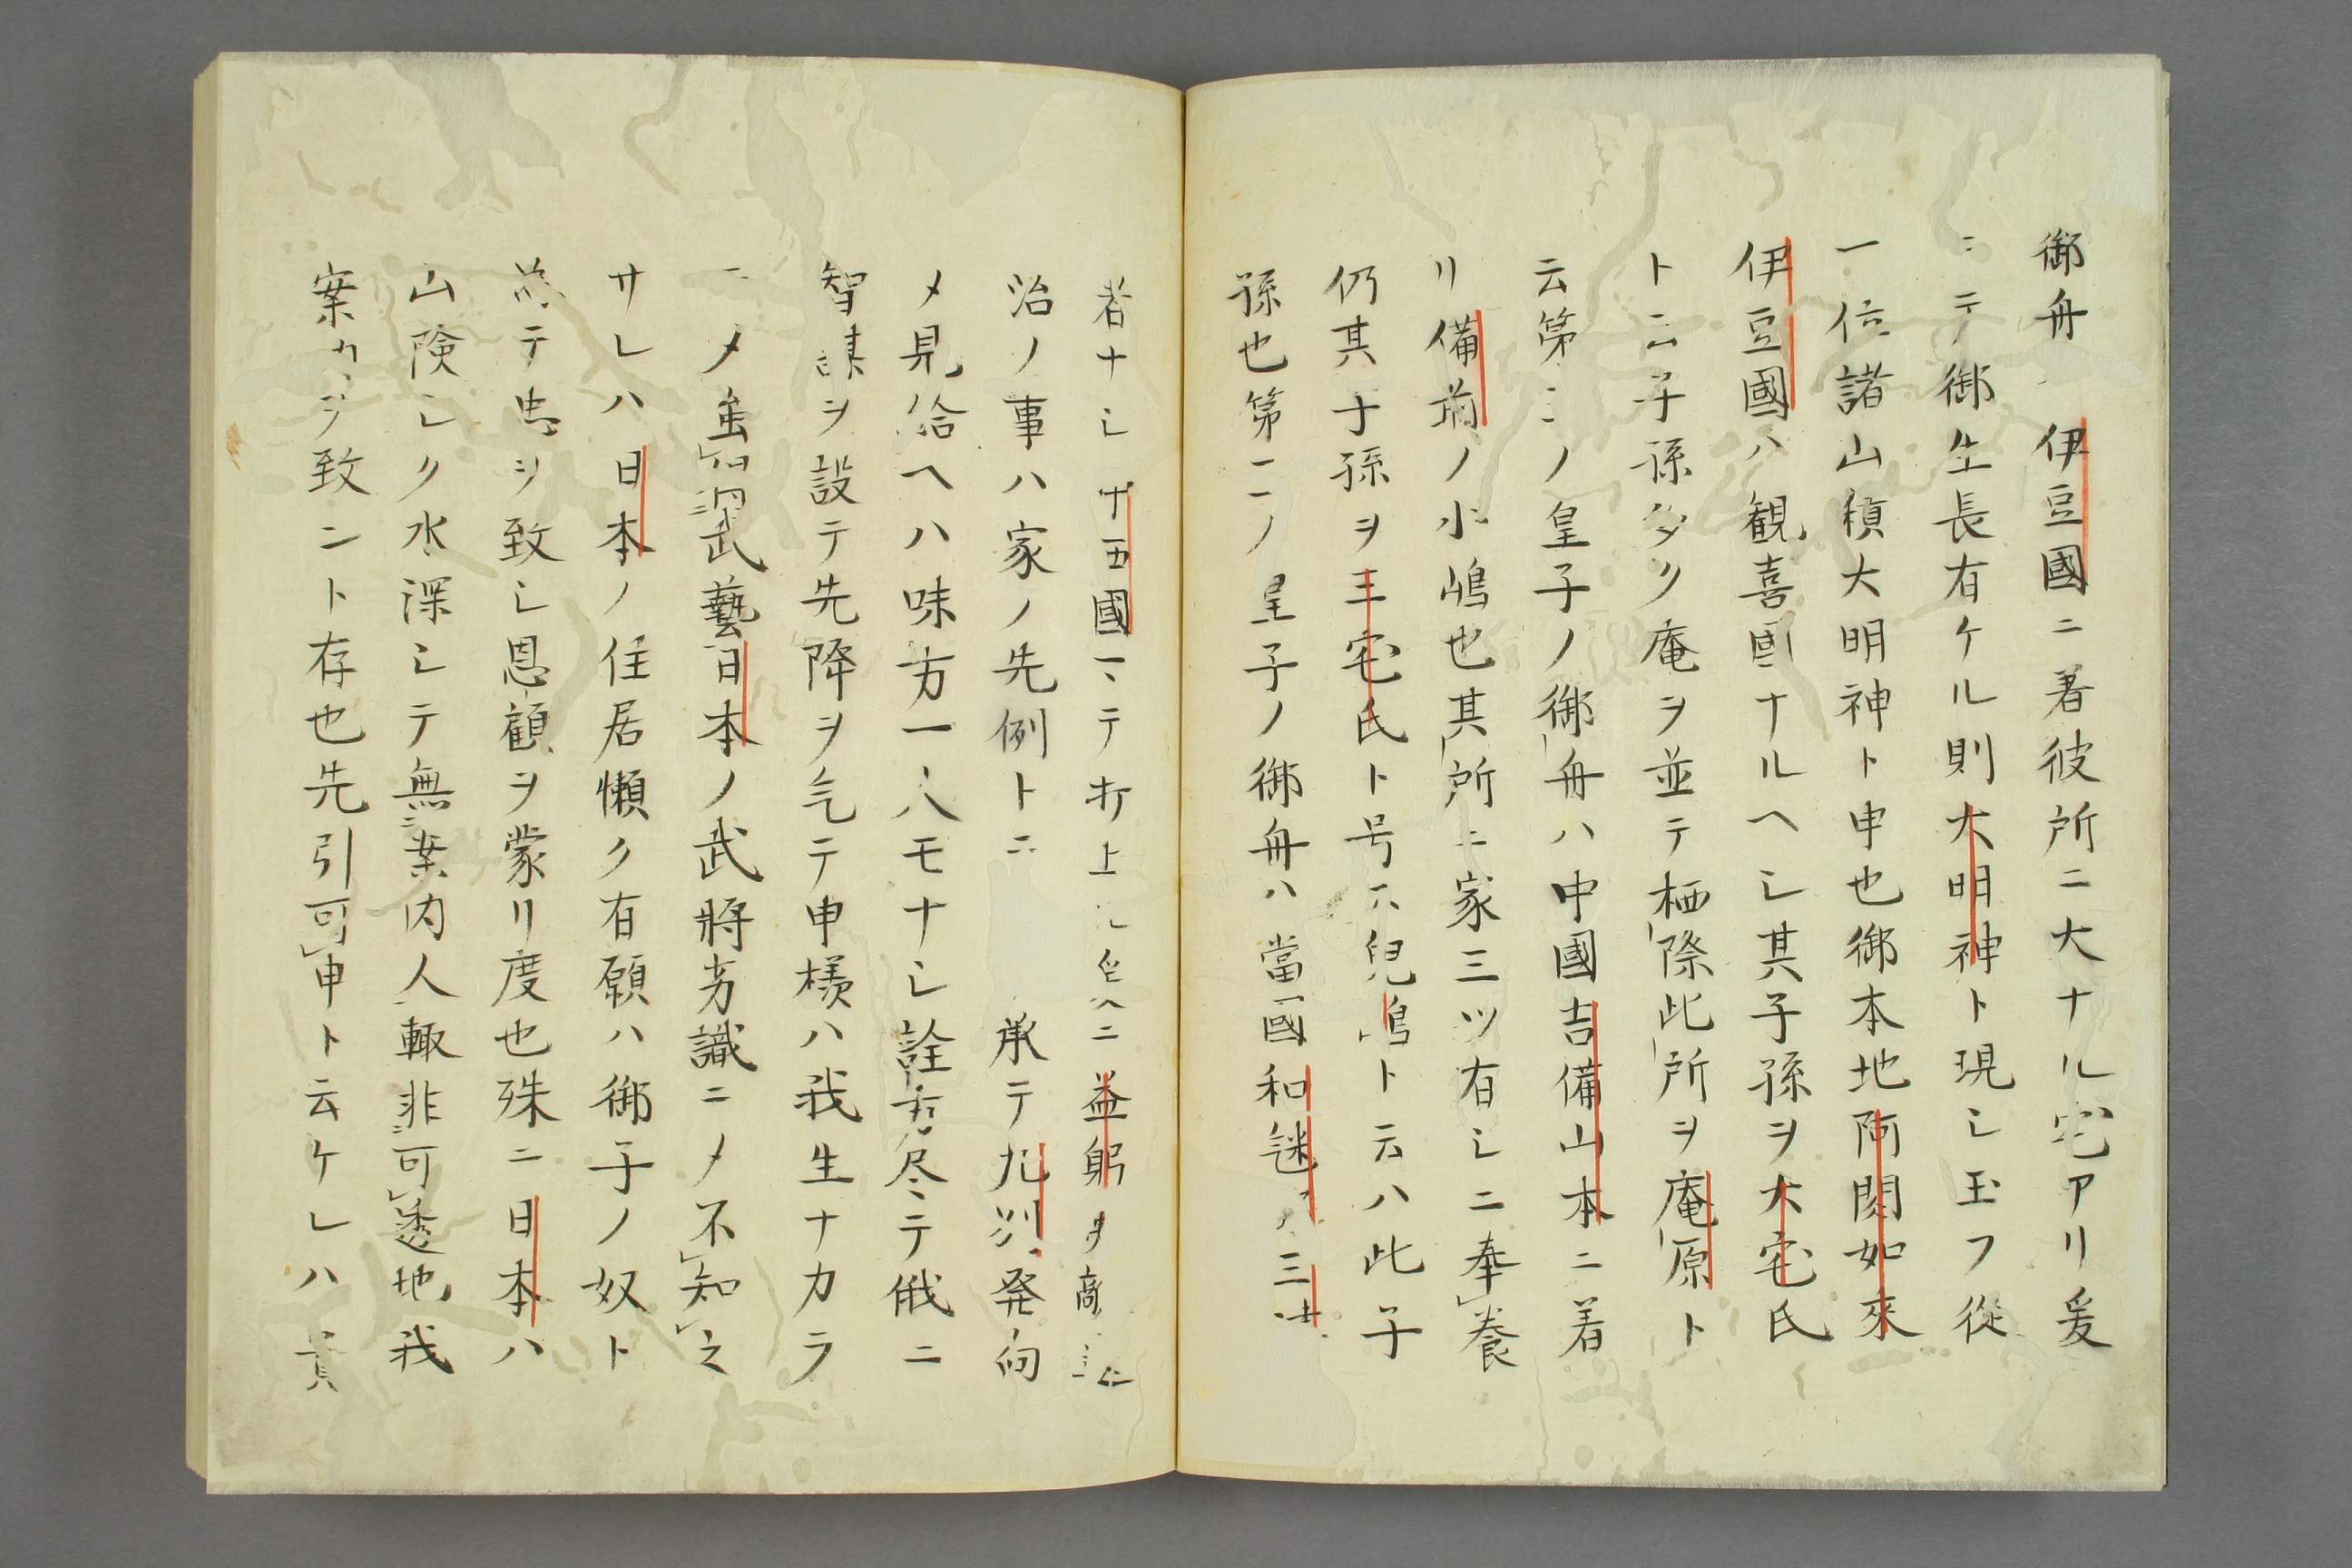 御舟 伊豆國ニ著彼所ニ大ナル宅アリ爰
ニテ御生長有ケル則大明神ト現シ玉フ從
一位諸山積大明神ト申也御本地阿閦如來
伊豆國ハ観喜國ナルヘシ其子孫ヲ大宅氏
ト云子孫多ク庵ヲ並テ栖際此所ヲ庵原ト
云第三ノ皇子ノ御舟ハ中國吉備山本ニ着
リ備前ノ小嶋也其所ニ家三ツ有シニ奉養
仍其子孫ヲ三宅氏ト号ス兒嶋ト云ハ此子
孫也第二ノ皇子ノ御舟ハ當國和氣 三津
者ナシ 西國 テ打上 ニ益躬
治ノ事ハ家ノ先例ト 承テ九州発向
メ見給ヘハ味方一人モナシ詮方尽テ俄ニ
智謀ヲ設テ先降ヲ乞テ申様ハ我生ナカラ
メ 武藝日本ノ武將 識ニメ不知之
サレハ日本ノ住居懶ク有願ハ御子ノ奴ト
テ忠ヲ致シ恩顧ヲ蒙リ度也殊ニ日本ハ
山険シク水深シテ無案内人輙非可透地我
案内ヲ致ント存也先引可申ト云ケレハ貴